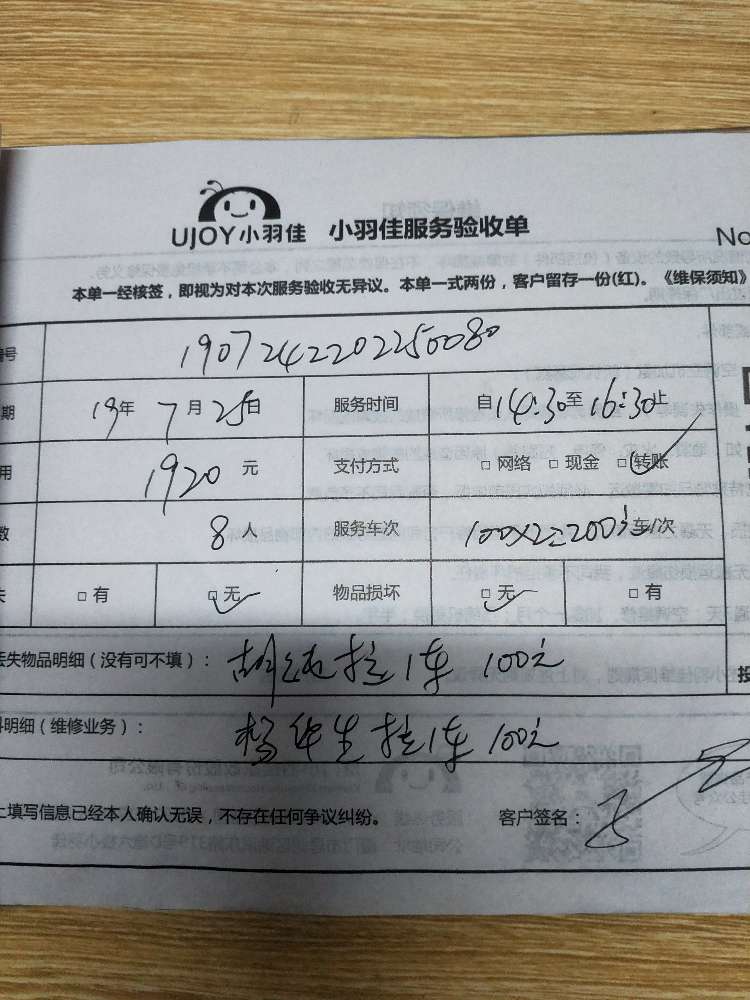 UJOY小羽佳 小羽佳服务验收单 No
本单一经核签，即视为对本次服务验收无异议。本单一式两份，客户留存一份(红)。《维保须知》
编号 1907242202250080
期 19年7月25日 服务时间 自14:30至16:30止
用 1920元 支付方式 □网络 □现金 □转账
数 8人 服务车次 100×2=200元车/次
失 □有 □无 物品损坏 □无 □有
丢失物品明细（没有可不填）： 拉1车 100元
料明细（维修业务）： 杨华生拉1车 100元
上填写信息已经本人确认无误，不存在任何争议纠纷。 客户签名：